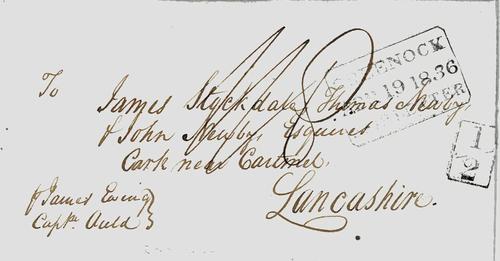 To
James Stockdale, Thomas Newby
& John Newby, Esquires
Cark near Cartmel,
Lancashire.
James Ewing
Captn. Auld
GREENOCK
19 1836
1/2